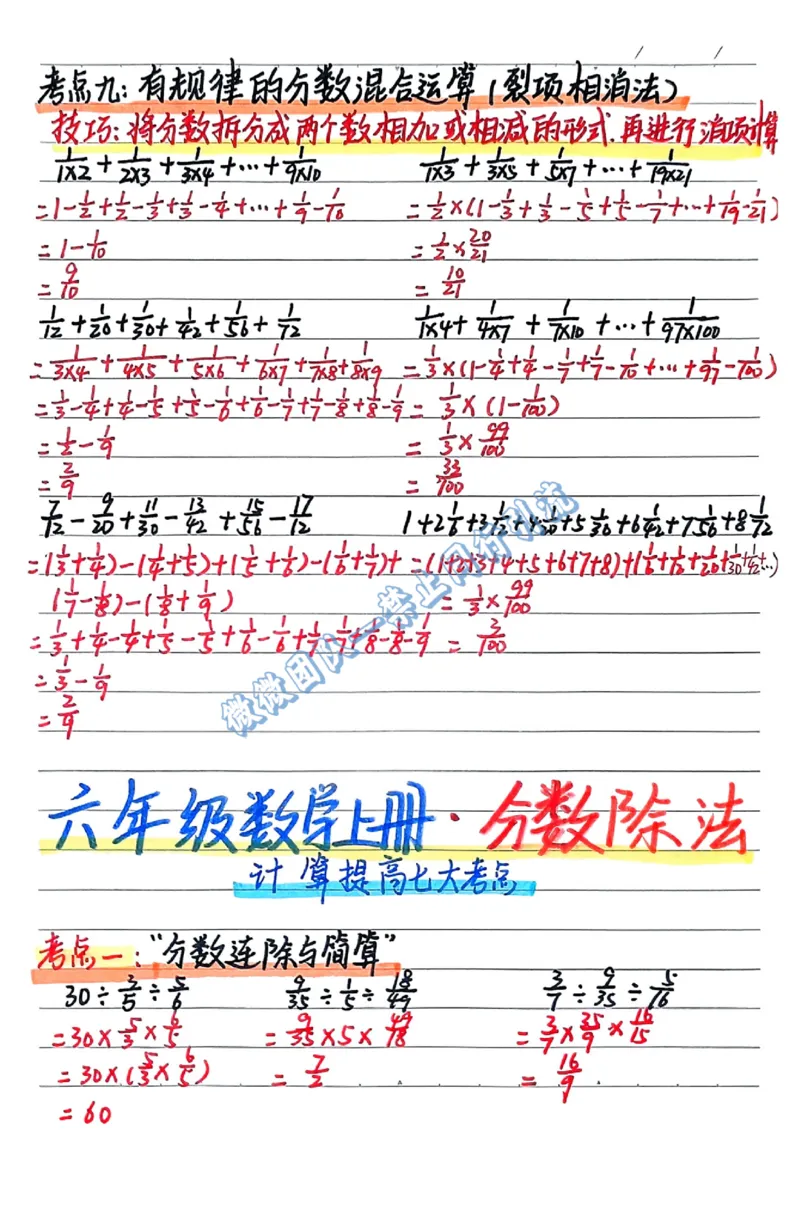 考点九：有规律的分数混合运算（裂项相消法）
技巧：将分数拆分成两个数相加或相减的形式，再进行消项计算
1/1×2 + 1/2×3 + 1/3×4 + … + 1/9×10
= 1 - 1/2 + 1/2 - 1/3 + 1/3 - 1/4 + … + 1/9 - 1/10
= 1 - 1/10
= 9/10
1/1×3 + 1/3×5 + 1/5×7 + … + 1/19×21
= 1/2 × (1 - 1/3 + 1/3 - 1/5 + 1/5 - 1/7 + … + 1/19 - 1/21)
= 1/2 × 20/21
= 10/21
1/12 + 1/20 + 1/30 + 1/42 + 1/56 + 1/72
= 1/3×4 + 1/4×5 + 1/5×6 + 1/6×7 + 1/7×8 + 1/8×9
= 1/3 - 1/4 + 1/4 - 1/5 + 1/5 - 1/6 + 1/6 - 1/7 + 1/7 - 1/8 + 1/8 - 1/9
= 1/2 - 1/9
= 2/9
1/1×4 + 1/4×7 + 1/7×10 + … + 1/97×100
= 1/3 × (1 - 1/4 + 1/4 - 1/7 + 1/7 - 1/10 + … + 1/97 - 1/100)
= 1/3 × (1 - 1/100)
= 1/3 × 99/100
= 33/100
7/12 - 9/20 + 11/30 - 13/42 + 15/56 - 17/12
= (1/3 + 1/4) - (1/4 + 1/5) + (1/5 + 1/6) - (1/6 + 1/7) +
(1/7 - 1/8) - (1/8 + 1/9)
= 1/3 + 1/4 - 1/4 + 1/5 - 1/5 + 1/6 - 1/6 + 1/7 - 1/7 + 1/8 - 1/8 - 1/9
= 1/3 - 1/9
= 2/9
1 + 2 1/6 + 3 1/12 + 4 1/20 + 5 1/30 + 6 1/42 + 7 1/56 + 8 1/72
= (1+2+3+4+5+6+7+8) + (1/6 + 1/12 + 1/20 + 1/30 + 1/42 + …)
= 1/3 × 99/100
= 3/100
微微团队一禁止同行引流
六年级数学上册·分数除法
计算提高七大考点
考点一：“分数连除与简算”
30 ÷ 3/5 ÷ 5/6
= 30 × 5/3 × 6/5
= 30 × (5/3 × 6/5)
= 60
9/35 ÷ 1/5 ÷ 18/49
= 9/35 × 5 × 49/18
= 7/2
3/7 ÷ 9/35 ÷ 5/16
= 3/7 × 35/9 × 16/15
= 16/9